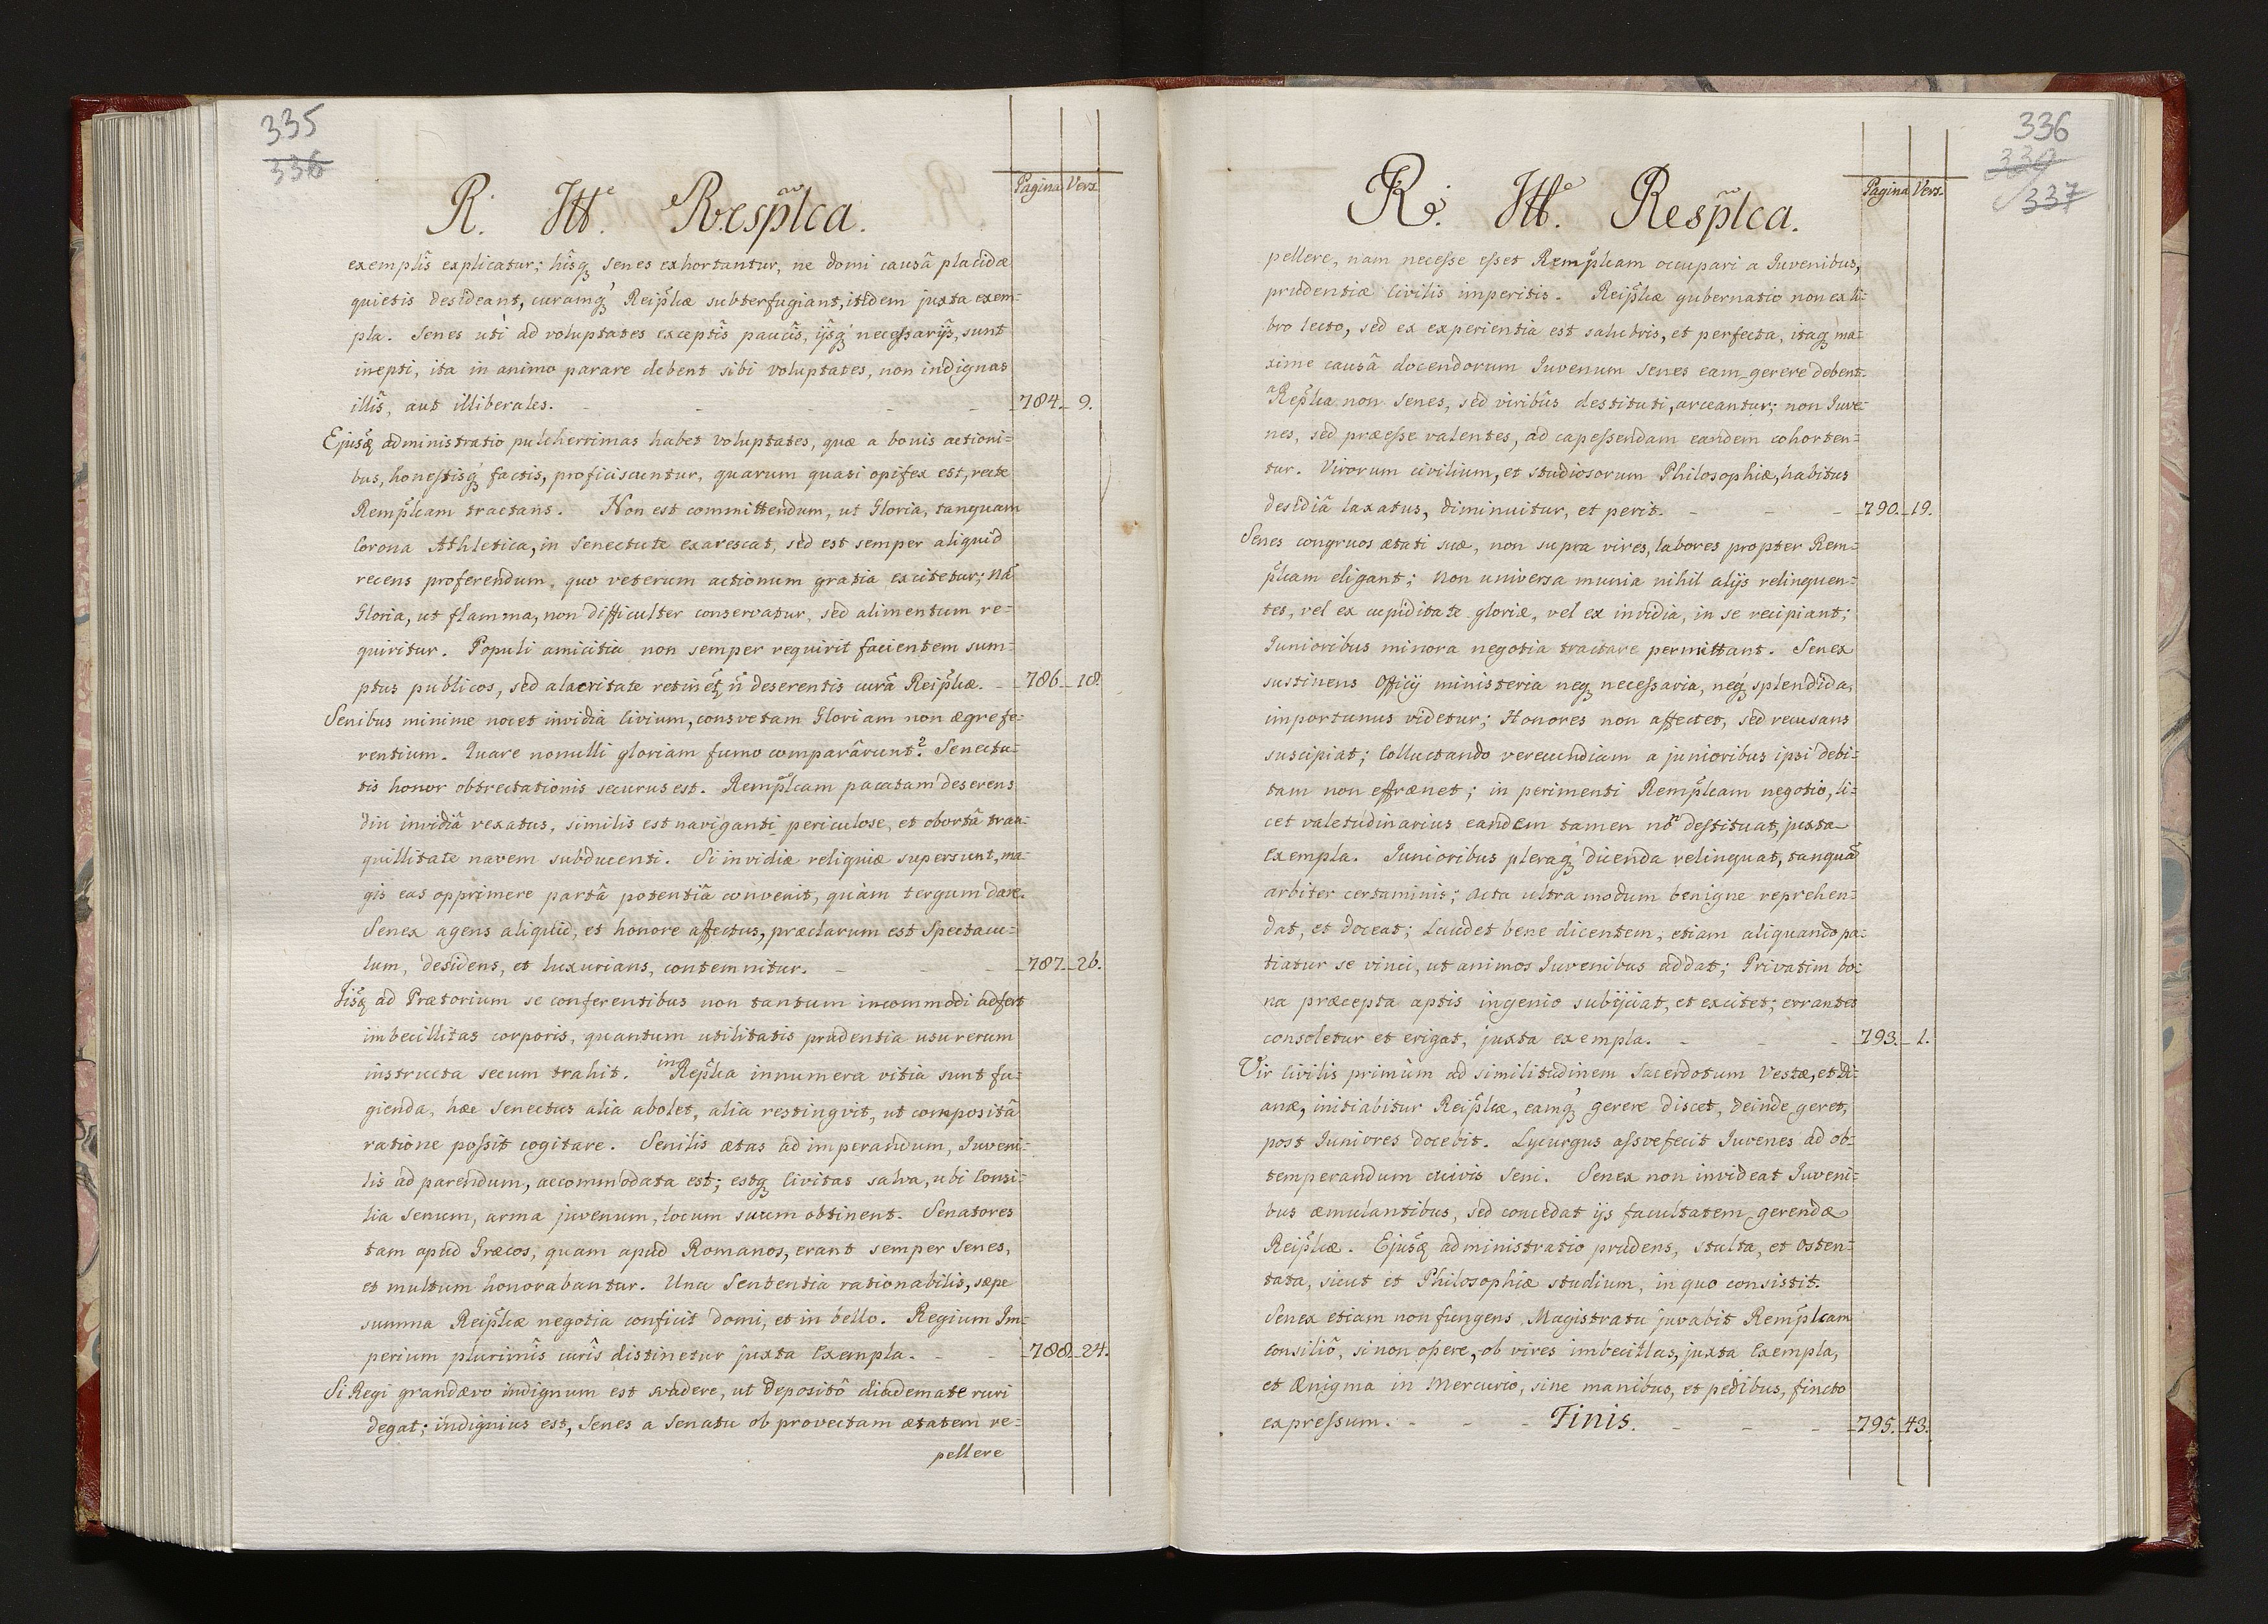 335
336
Pagina Vers.
R. Itt.e Resplca.
exemplîs explicatur; hîsq; senes exhortantur, ne domi causâ placidæ
quietis desideant, curamq; Reiplcæ subterfugiant, itidem juxta exem=
pla. Senes uti ad voluptates exceptîs paucîs, ijsq; necessarijs, sunt
inepti, ita in animo parare debent sibi voluptates, non indignas
illîs, aut illiberales. - - - - - 784. 9.
Ejusq; administratio pulcherrimas habet voluptates, quæ a bonis actioni=
bus, honestisq; factis, proficiscuntur, quarum quasi opifex est, recte
Remplcam tractans. Non est committendum, ut Gloria, tanquam
Corona Athletica, in Senectute exarescat, sed est semper aliquid
recens proferendum, quo veterum actionum gratia excitetur; nã
Gloria, ut flamma, non difficulter conservatur, sed alimentum re=
quiritur. Populi amicitia non semper requirit facientem sum=
ptus publicos, sed alacritate retinet; ñ deserentis curâ Reiplcæ. - 786. 18.
Senibus minime nocet invidia Civium, consvetam Gloriam non ægre fe=
rentium. Quare nonulli gloriam fumo comparârunt? Senectu=
tis honor obtrectationis securus est. Remplcam pacatam deserens
diu invidiâ vexatus, similis est naviganti periculose, et obortâ tran=
quillitate navem subducenti. Si invidiæ reliquiæ supersunt, ma=
gis eas opprimere partâ potentiâ convenit, quàm tergum dare.
Senex agens aliquid, et honore affectus, præclarum est Spectacu=
lum, desidens, et luxurians, contemnitur. - - - 787. 26.
Iisq; ad Prætorium se conferentibus non tantum incommodi adfert
imbecillitas corporis, quantum utilitatis prudentia usu rerum
instructa secum trahit. in Replca innumera vitia sunt fu=
gienda, hæc Senectus alia abolet, alia restingvit, ut compositâ
ratione possit cogitare. Senilis ætas ad imperandum, Juveni=
lis ad parendum, accommodata est; estq; Civitas salva, ubi Consi=
lia Senum, arma juvenum, locum suum obtinent. Senatores
tam apud Græcos, quam apud Romanos, erant semper Senes,
et multum honorabantur. Una Sententia rationabilis, sæpe
summa Reiplcæ negotia conficit domi, et in bello. Regium Im=
perium plurimîs curîs distinetur juxta Exempla. - - 788. 24.
Si Regi grandævo indignum est svadere, ut Depositô diademate ruri
degat; indignius est, Senes a Senatu ob provectam ætatem re=
pellere
336
337
Pagina Vers.
R. Itt.e Resplca.
pellere, nam necesse esset Remplcam occupari a Juvenibus,
prudentiæ Civilis imperitis. Reiplcæ gubernatio non ex li=
bro lecto, sed ex experientia est salubris, et perfecta, itaq; ma=
xime causâ docendorum Juvenum Senes eam gerere debent.
a Replca non Senes, sed viribus destituti, arceantur; non Juve=
nes, sed præesse valentes, ad capessendam eandem cohorten=
tur. Virorum civilium, et studiosorum Philosophiæ, habitus
desidiâ laxatus, diminuitur, et perit. - - - 790. 19.
Senes congruos ætati suæ, non supra vires, labores propter Rem=
plcam eligant; non universa munia nihil alijs relinquen=
tes, vel ex cupiditate gloriæ, vel ex invidia, in se recipiant;
Junioribus minora negotia tractare permittant. Senex
sustinens Officij ministeria neq; necessaria, neq; splendida,
importunus videtur; Honores non affectet, sed recusans
suscipiat; Colluctando verecundiam a junioribus ipsi debi=
tam non effrænet; in perimenti Remplcam negotio, li=
cet valetudinarius eandem tamen nõ destituat, juxta
exempla. Junioribus pleraq; dicenda relinquat, tanquã
arbiter certaminis; acta ultra modum benigne reprehen=
dat, et doceat; Laudet bene dicentem, etiam aliquando pa=
tiatur se vinci, ut animos Juvenibus addat; Privatim bo=
na præcepta aptis ingenio subijciat, et excitet; errantes
consoletur et erigat, juxta exempla. - - - 793. 1.
Vir Civilis primùm ad similitudinem Sacerdotum Vestæ, et Di=
anæ, initiabitur Reiplcæ, eamq; gerere discet, deinde geret,
post Juniores docebit. Lycurgus assvefecit Juvenes ad ob=
temperandum cuivis Seni. Senex non invideat Juveni=
bus æmulantibus, sed concedat ijs facultatem gerendæ
Reiplcæ. Ejusq; administratio prudens, stulta, et osten=
tata, sicut et Philosophiæ studium, in quo consistit.
Senex etiam non fungens Magistratu juvabit Remplcam
consiliô, si non opere, ob vires imbecillas, juxta Exempla,
et Ænigma in Mercurio, sine manibus, et pedibus, fincto
expressum. - - - Finis. - - - 795. 43.